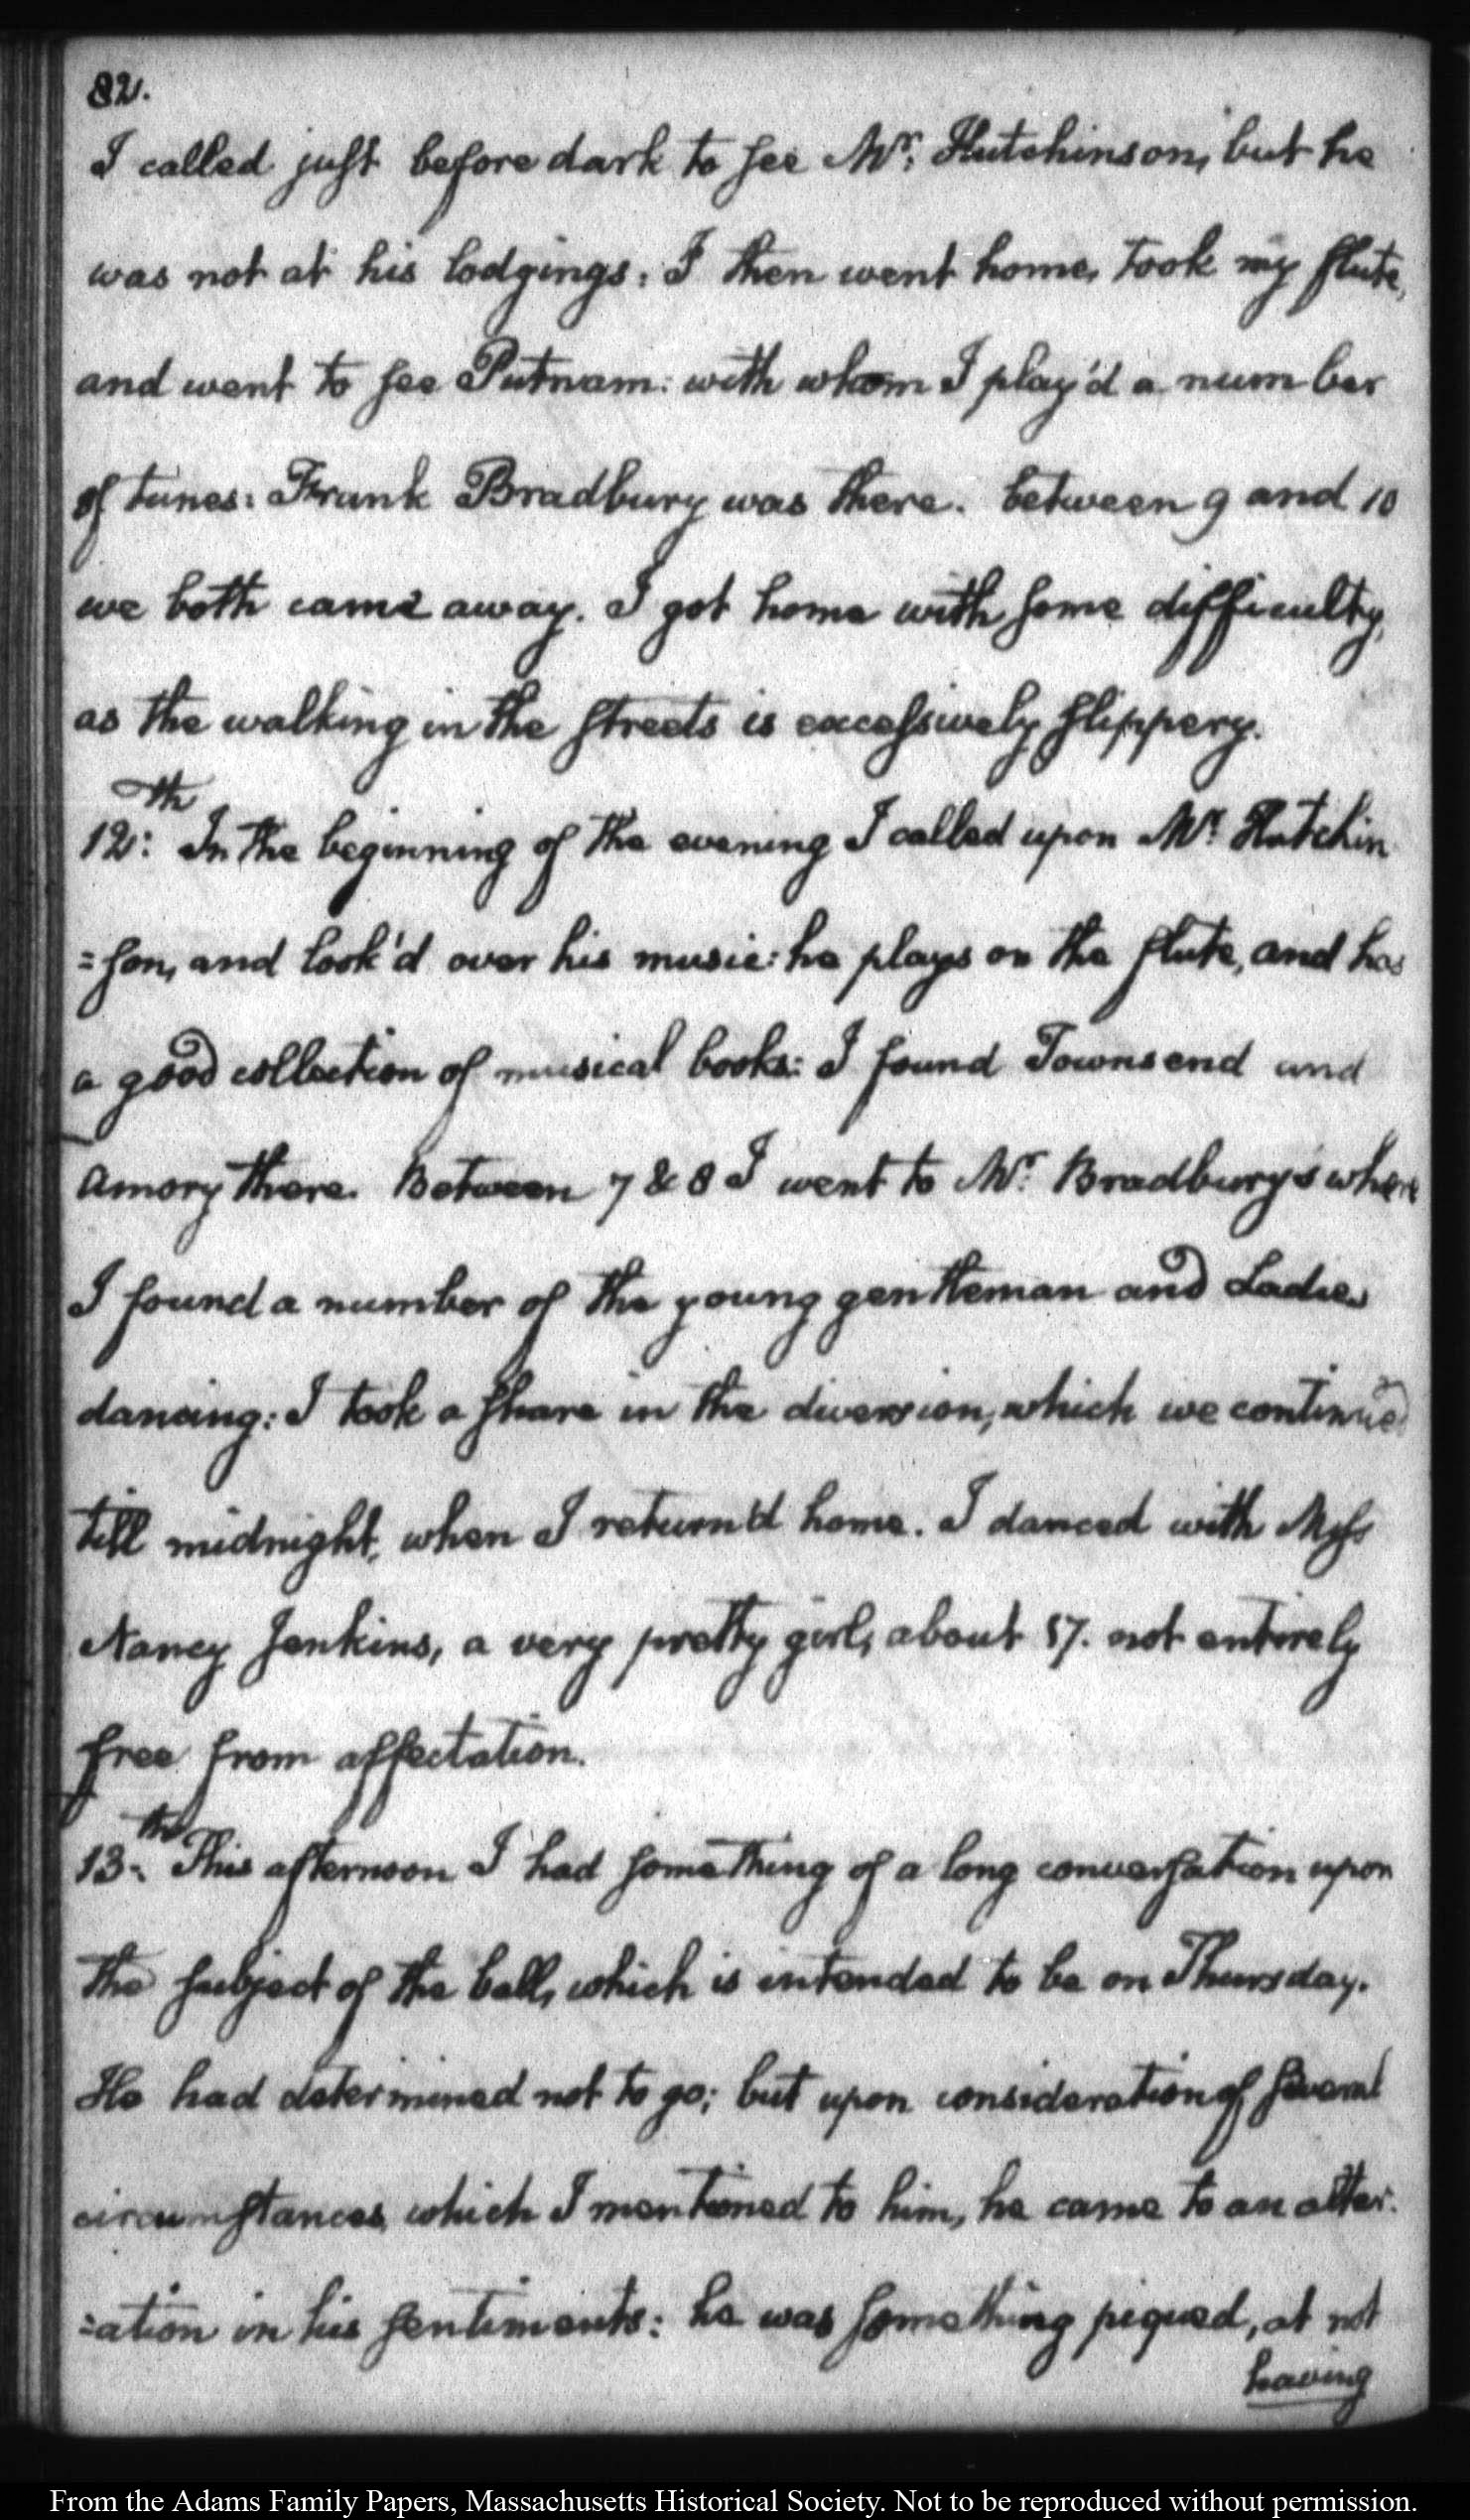 82.
I called just before dark to see Mr. Hutchinson, but he
was not at his lodgings: I then went home, took my flute,
and went to see Putnam: with whom I play'd a number
of tunes: Frank Bradbury was there. between 9 and 10
we both came away. I got home with some difficulty,
as the walking in the streets is excessively slippery.
12th: In the beginning of the evening I called upon Mr. Hutchin
=son, and look'd over his music: he plays on the flute, and has
a good collection of musical books: I found Townsend and
Amory there. Between 7 & 8 I went to Mr. Bradbury's where
I found a number of the young gentleman and Ladies
dancing: I took a share in the diversion, which we continued
till midnight, when I return'd home. I danced with Miss
Nancy Jenkins, a very pretty girl, about 17. not entirely
free from affectation.
13th. This afternoon I had something of a long conversation upon
the subject of the ball, which is intended to be on Thursday.
He had determined not to go; but upon consideration of several
circumstances, which I mentioned to him, he came to an alter.
=ation in his sentiments: he was something piqued, at not
having
From the Adams Family Papers, Massachusetts Historical Society. Not to be reproduced without permission.